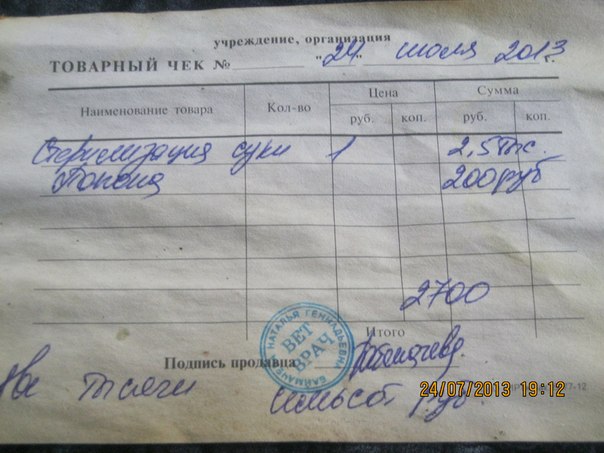 учреждение, организация
ТОВАРНЫЙ ЧЕК № "24" июля 2013 г.
Наименование товара Кол-во Цена Сумма
руб. коп. руб. коп.
Стерилизация суки 1 2,5 тыс.
Попона 200 руб
2700
Итого
Подпись продавца
НАТАЛЬЯ ГЕННАДЬЕВНА
ВЕТ
ВРАЧ
две тысячи семьсот руб
24/07/2013 19:12